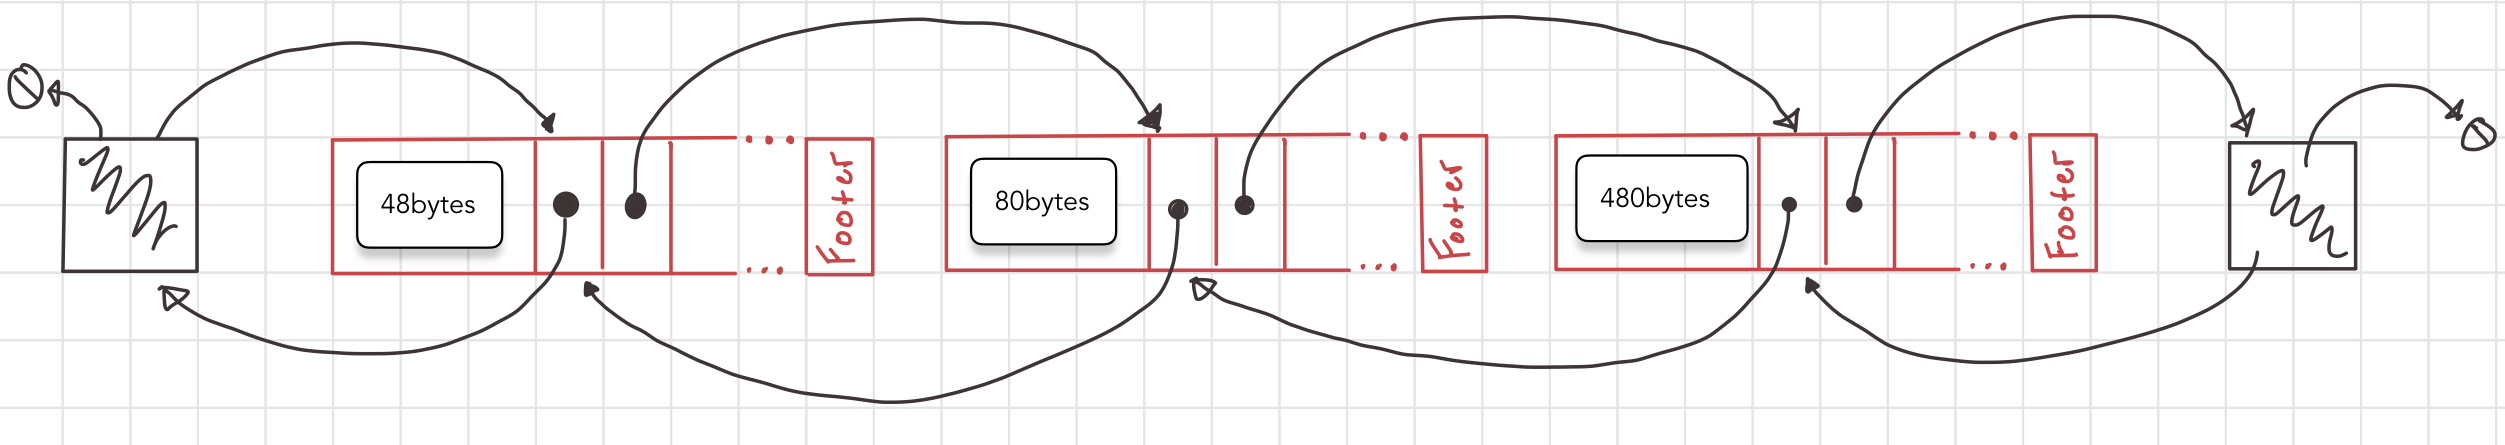 Ø
48bytes
Footer
80bytes
Footer
480bytes
Footer
Ø